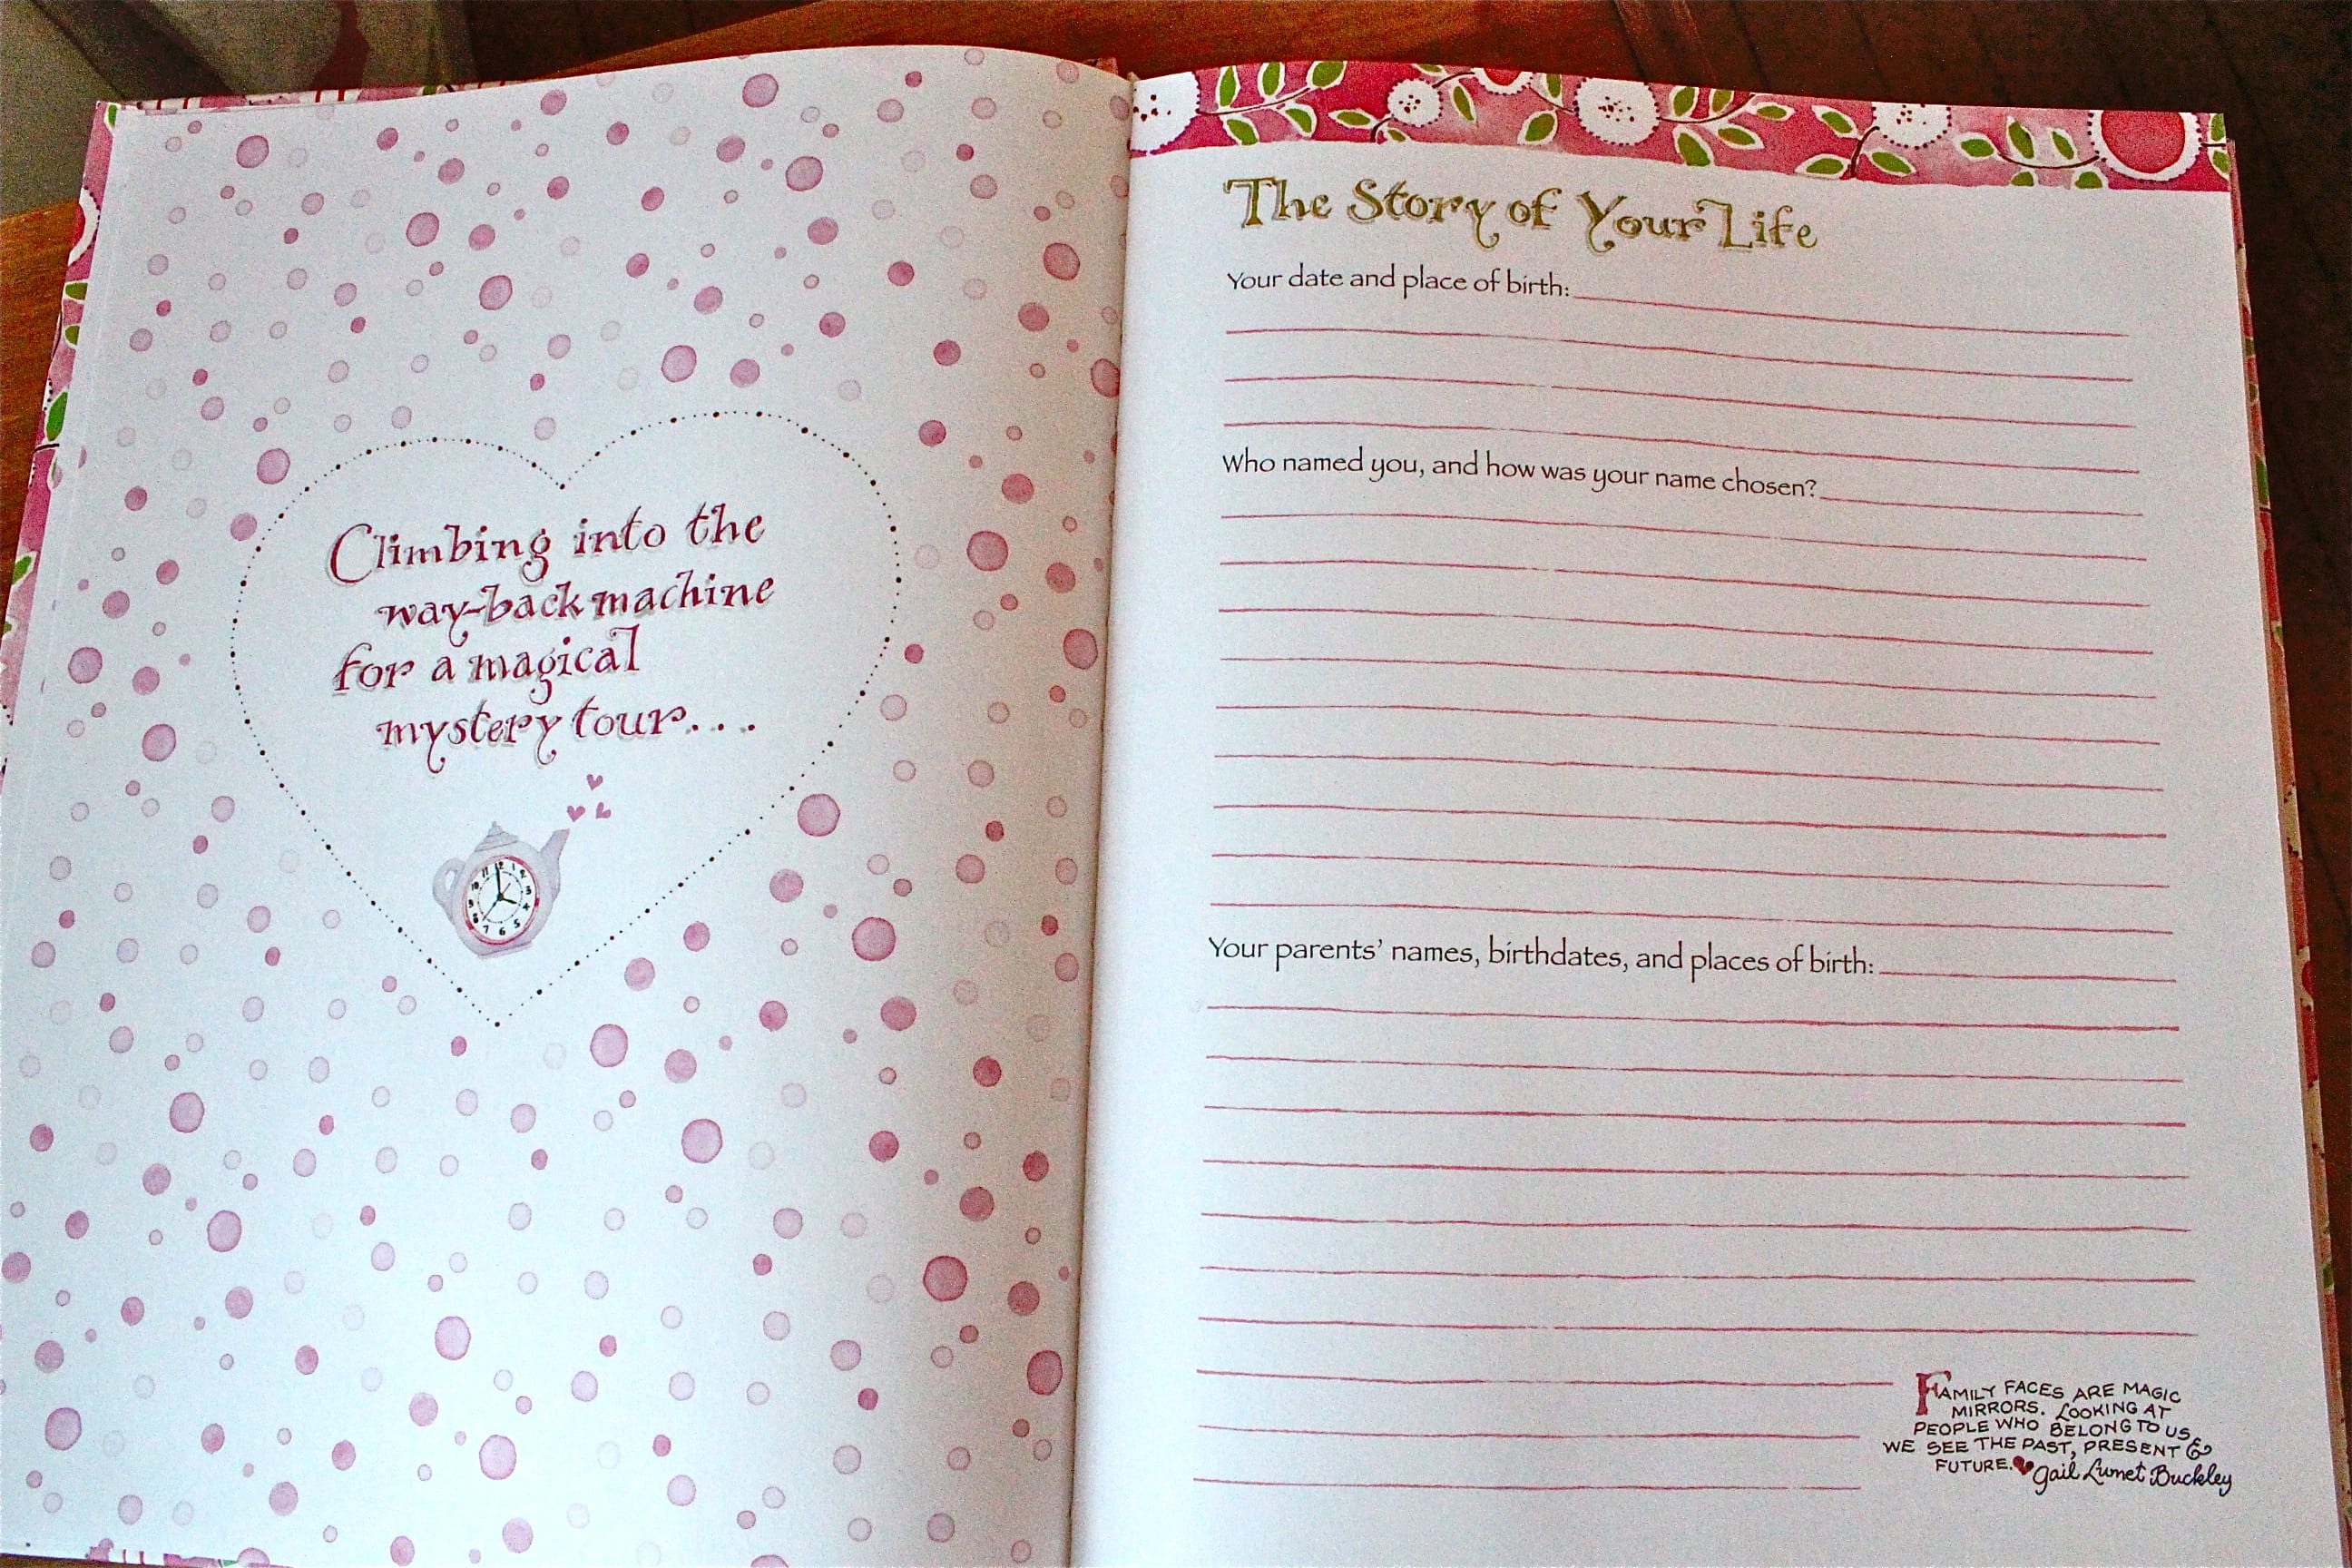 Climbing into the
way-back machine
for a magical
mystery tour...
The Story of Your Life
Your date and place of birth:
Who named you, and how was your name chosen?
Your parents' names, birthdates, and places of birth:
FAMILY FACES ARE MAGIC
MIRRORS. LOOKING AT
PEOPLE WHO BELONG TO US,
WE SEE THE PAST, PRESENT &
FUTURE. Gail Lumet Buckley